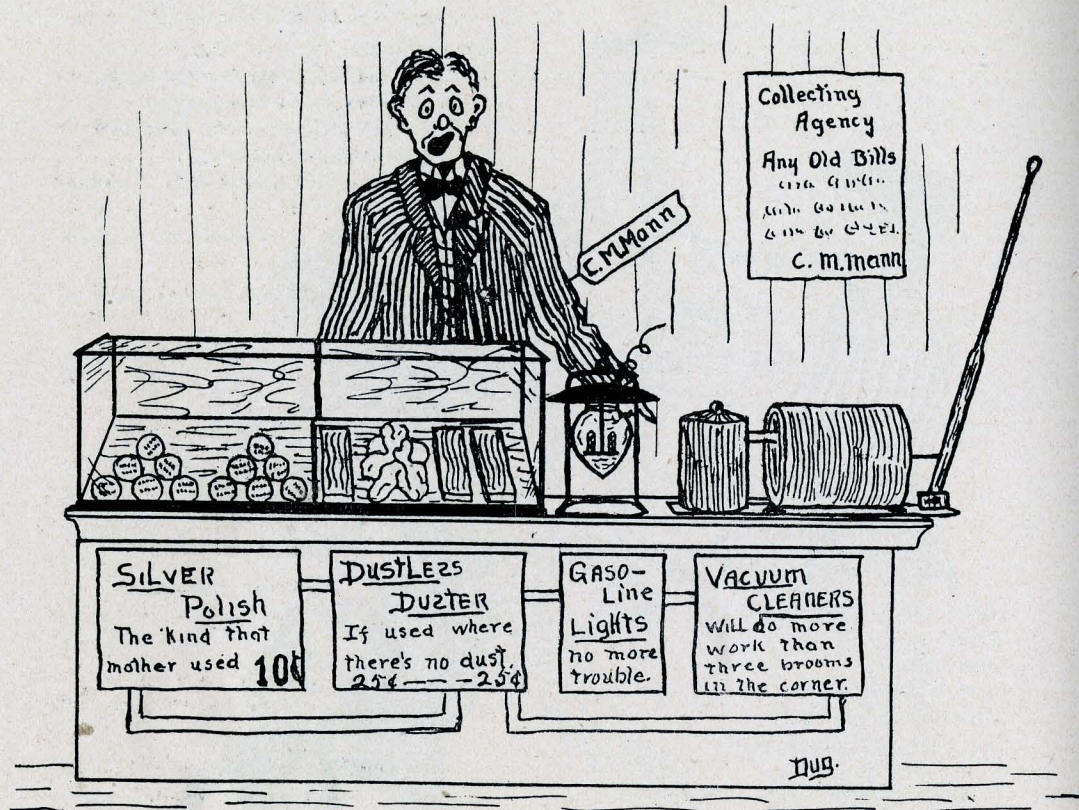 Collecting
Agency
Any Old Bills
C. M. Mann
C. M. Mann
SILVER
Polish
The kind that
mother used 10¢
DUSTLEzS
DUzTER
If used where
there's no dust.
25¢ — — - 25¢
GASO-
Line
Lights
no more
trouble.
VACUUM
CLEANERS
will do more
work than
three brooms
in the corner.
Dug.